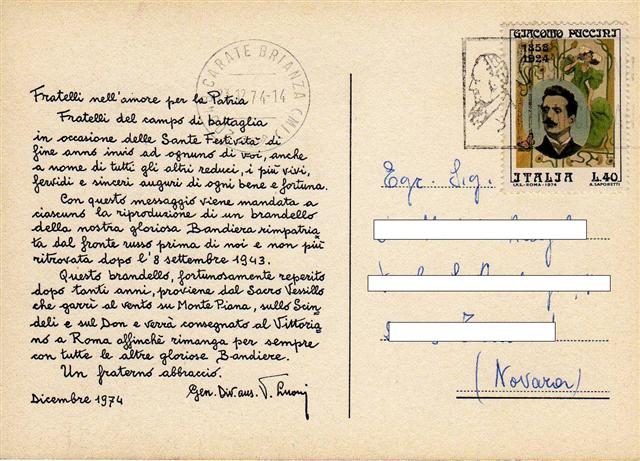 CARATE BRIANZA (MI)
12.74-14
GIACOMO PUCCINI
1858
1924
ITALIA L.40
I.P.S.-ROMA-1974 A. SAPORETTI
Fratelli nell'amore per la Patria
Fratelli del campo di battaglia
in occasione delle Sante Festività di
fine anno invio ad ognuno di voi, anche
a nome di tutti gli altri reduci, i più vivi,
fervidi e sinceri auguri di ogni bene e fortuna.
Con questo messaggio viene mandata a
ciascuno la riproduzione di un brandello
della nostra gloriosa Bandiera rimpatria
ta dal fronte russo prima di noi e non più
ritrovata dopo l'8 settembre 1943.
Questo brandello, fortunosamente reperito
dopo tanti anni, proviene dal Sacro Vessillo
che garrì al vento su Monte Piana, sullo Scin
deli e sul Don e verrà consegnato al Vittoria
no a Roma affinchè rimanga per sempre
con tutte le altre gloriose Bandiere.
Un fraterno abbraccio.
Gen. Div. aus.
Dicembre 1974
Egr. Sig.
(Novara)